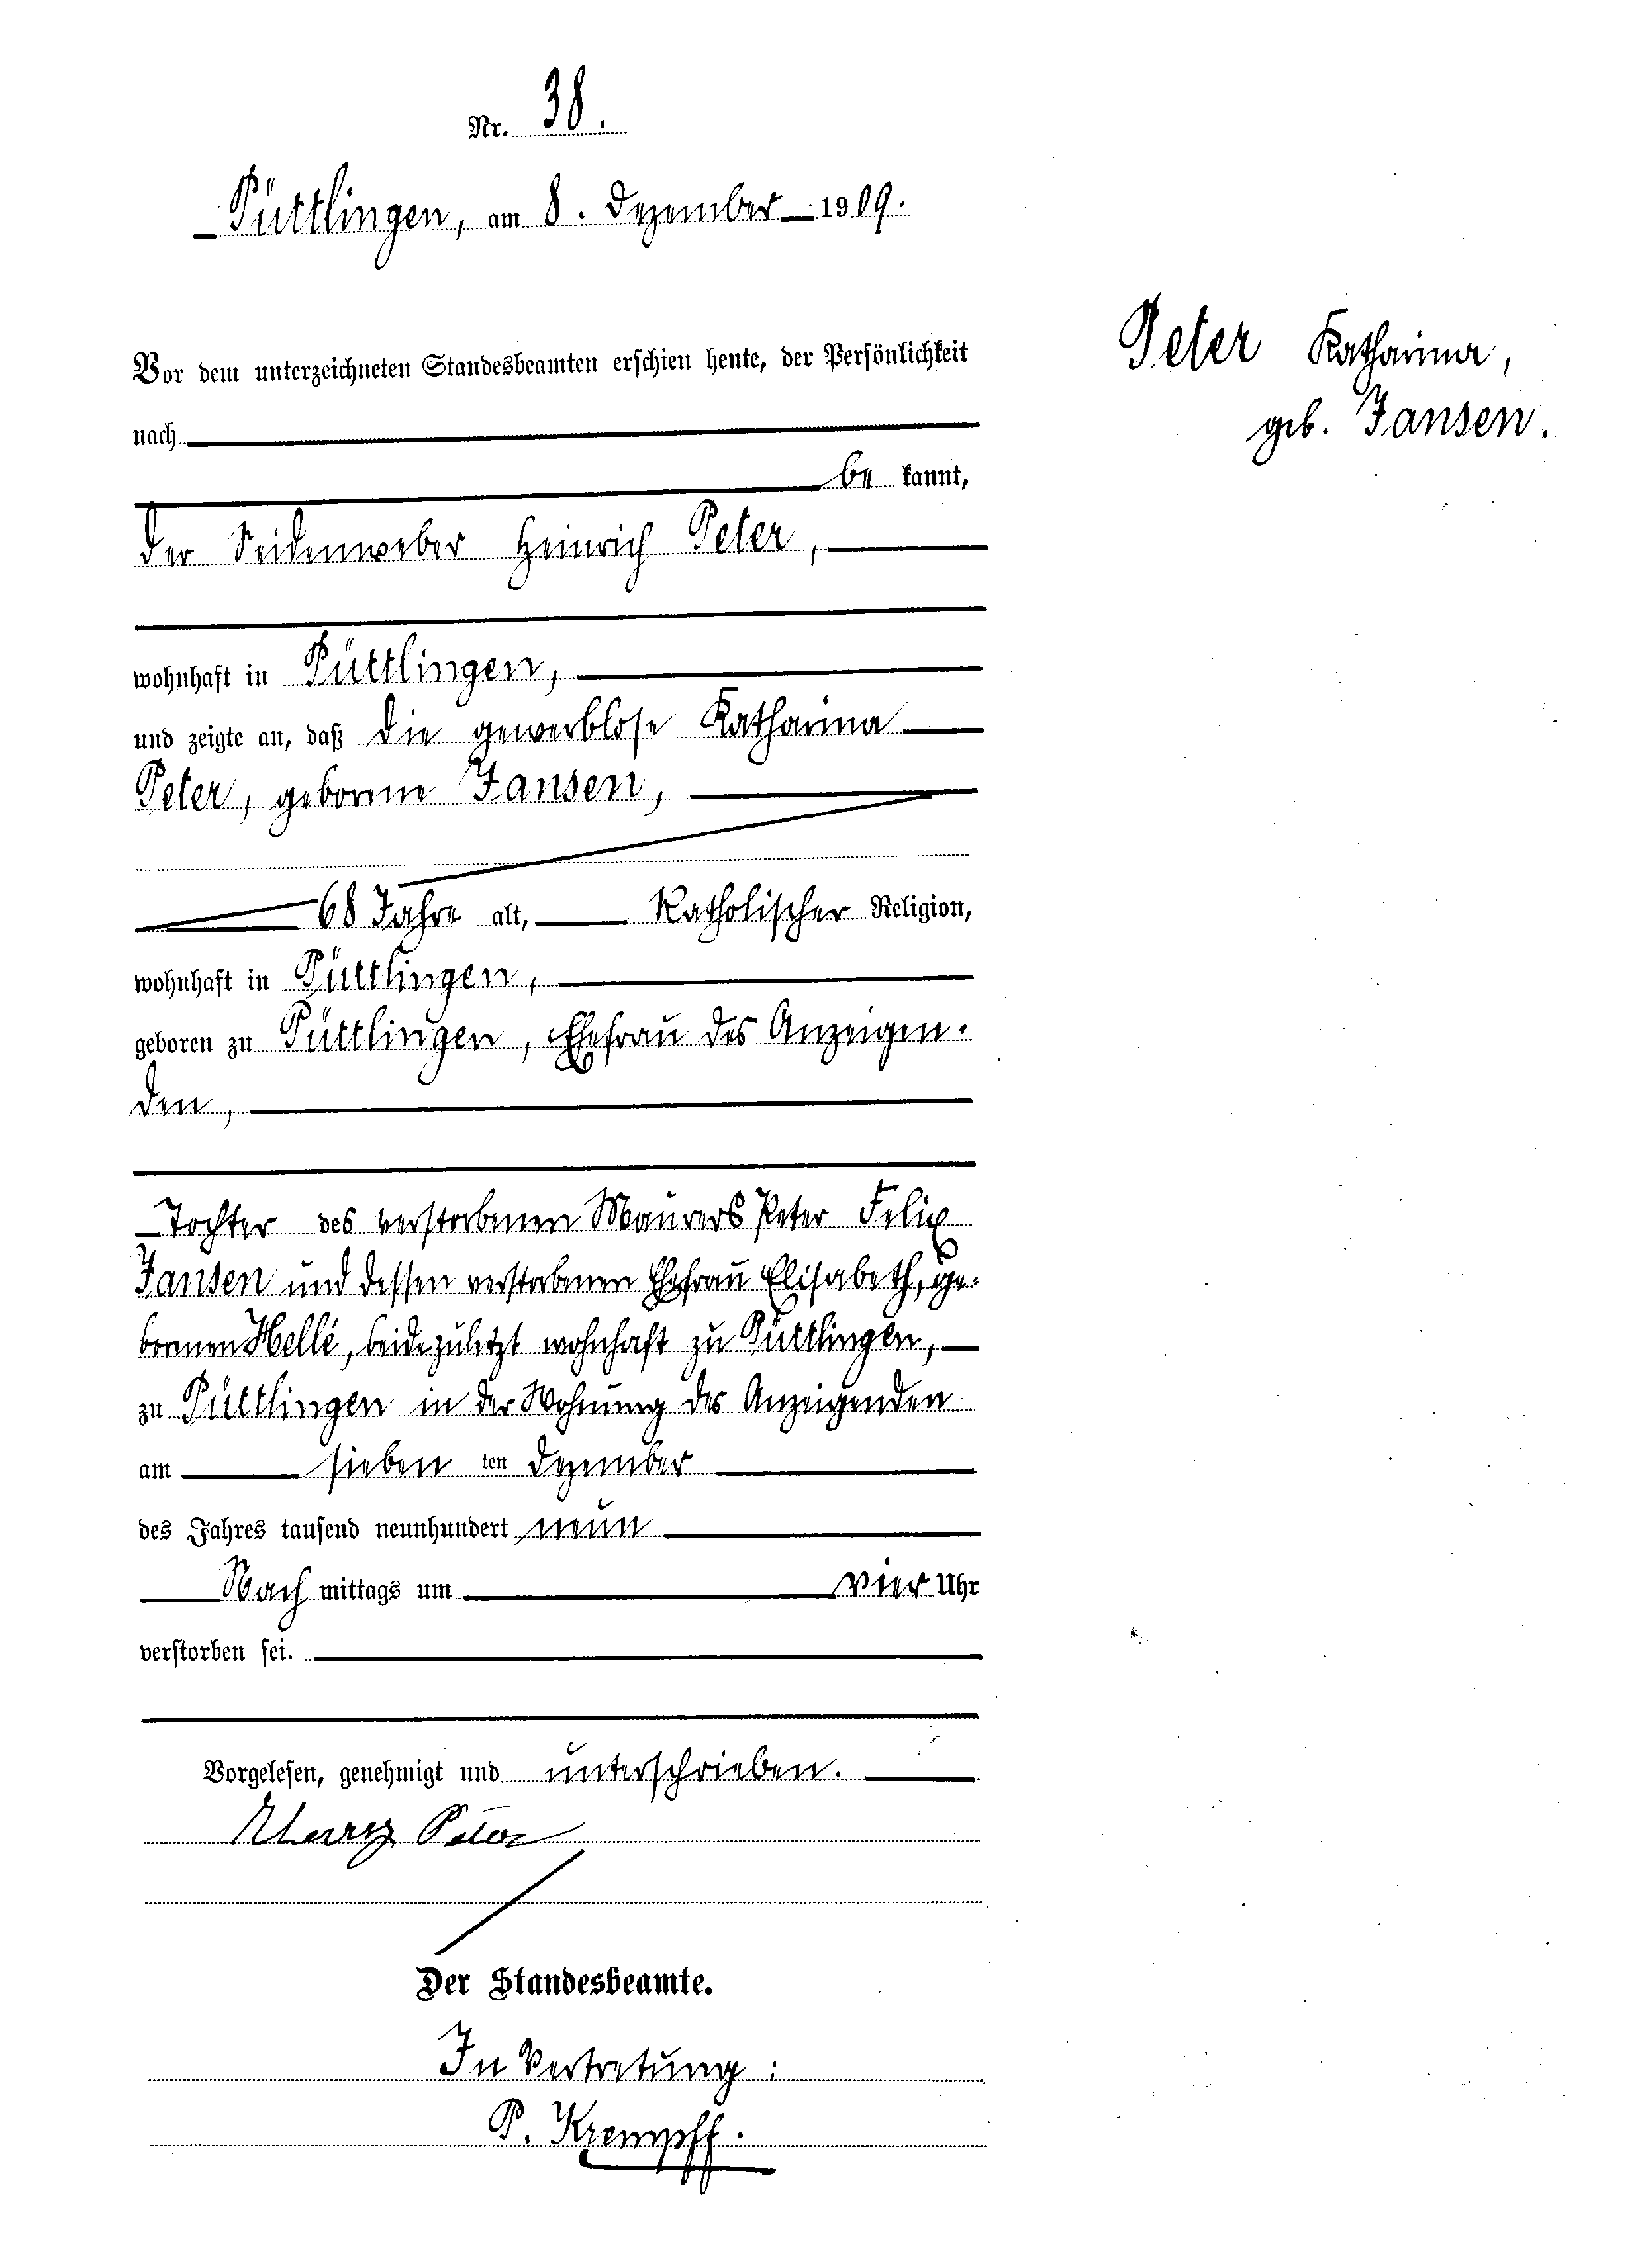 Nr. 38.
Püttlingen, am 8. Dezember 1909.
Peter Katharina,
geb. Jansen.
Vor dem unterzeichneten Standesbeamten erschien heute, der Persönlichkeit
nach
be kannt,
der Seidenweber Heinrich Peter,
wohnhaft in Püttlingen,
und zeigte an, daß die gewerblose Katharina
Peter, geborene Jansen,
68 Jahre alt, Katholischer Religion,
wohnhaft in Püttlingen,
geboren zu Püttlingen, Ehefrau des Anzeigen-
den,
Tochter des verstorbenen Maurers Peter Felix
Jansen und dessen verstorbenen Ehefrau Elisabeth, ge-
borenen Hellé, beide zuletzt wohnhaft zu Püttlingen,
zu Püttlingen in der Wohnung des Anzeigenden
am sieben ten Dezember
des Jahres tausend neunhundert neun
Nach mittags um vier Uhr
verstorben sei.
Vorgelesen, genehmigt und unterschrieben.
Peter
Der Standesbeamte.
In Vertretung:
P. Krempff.